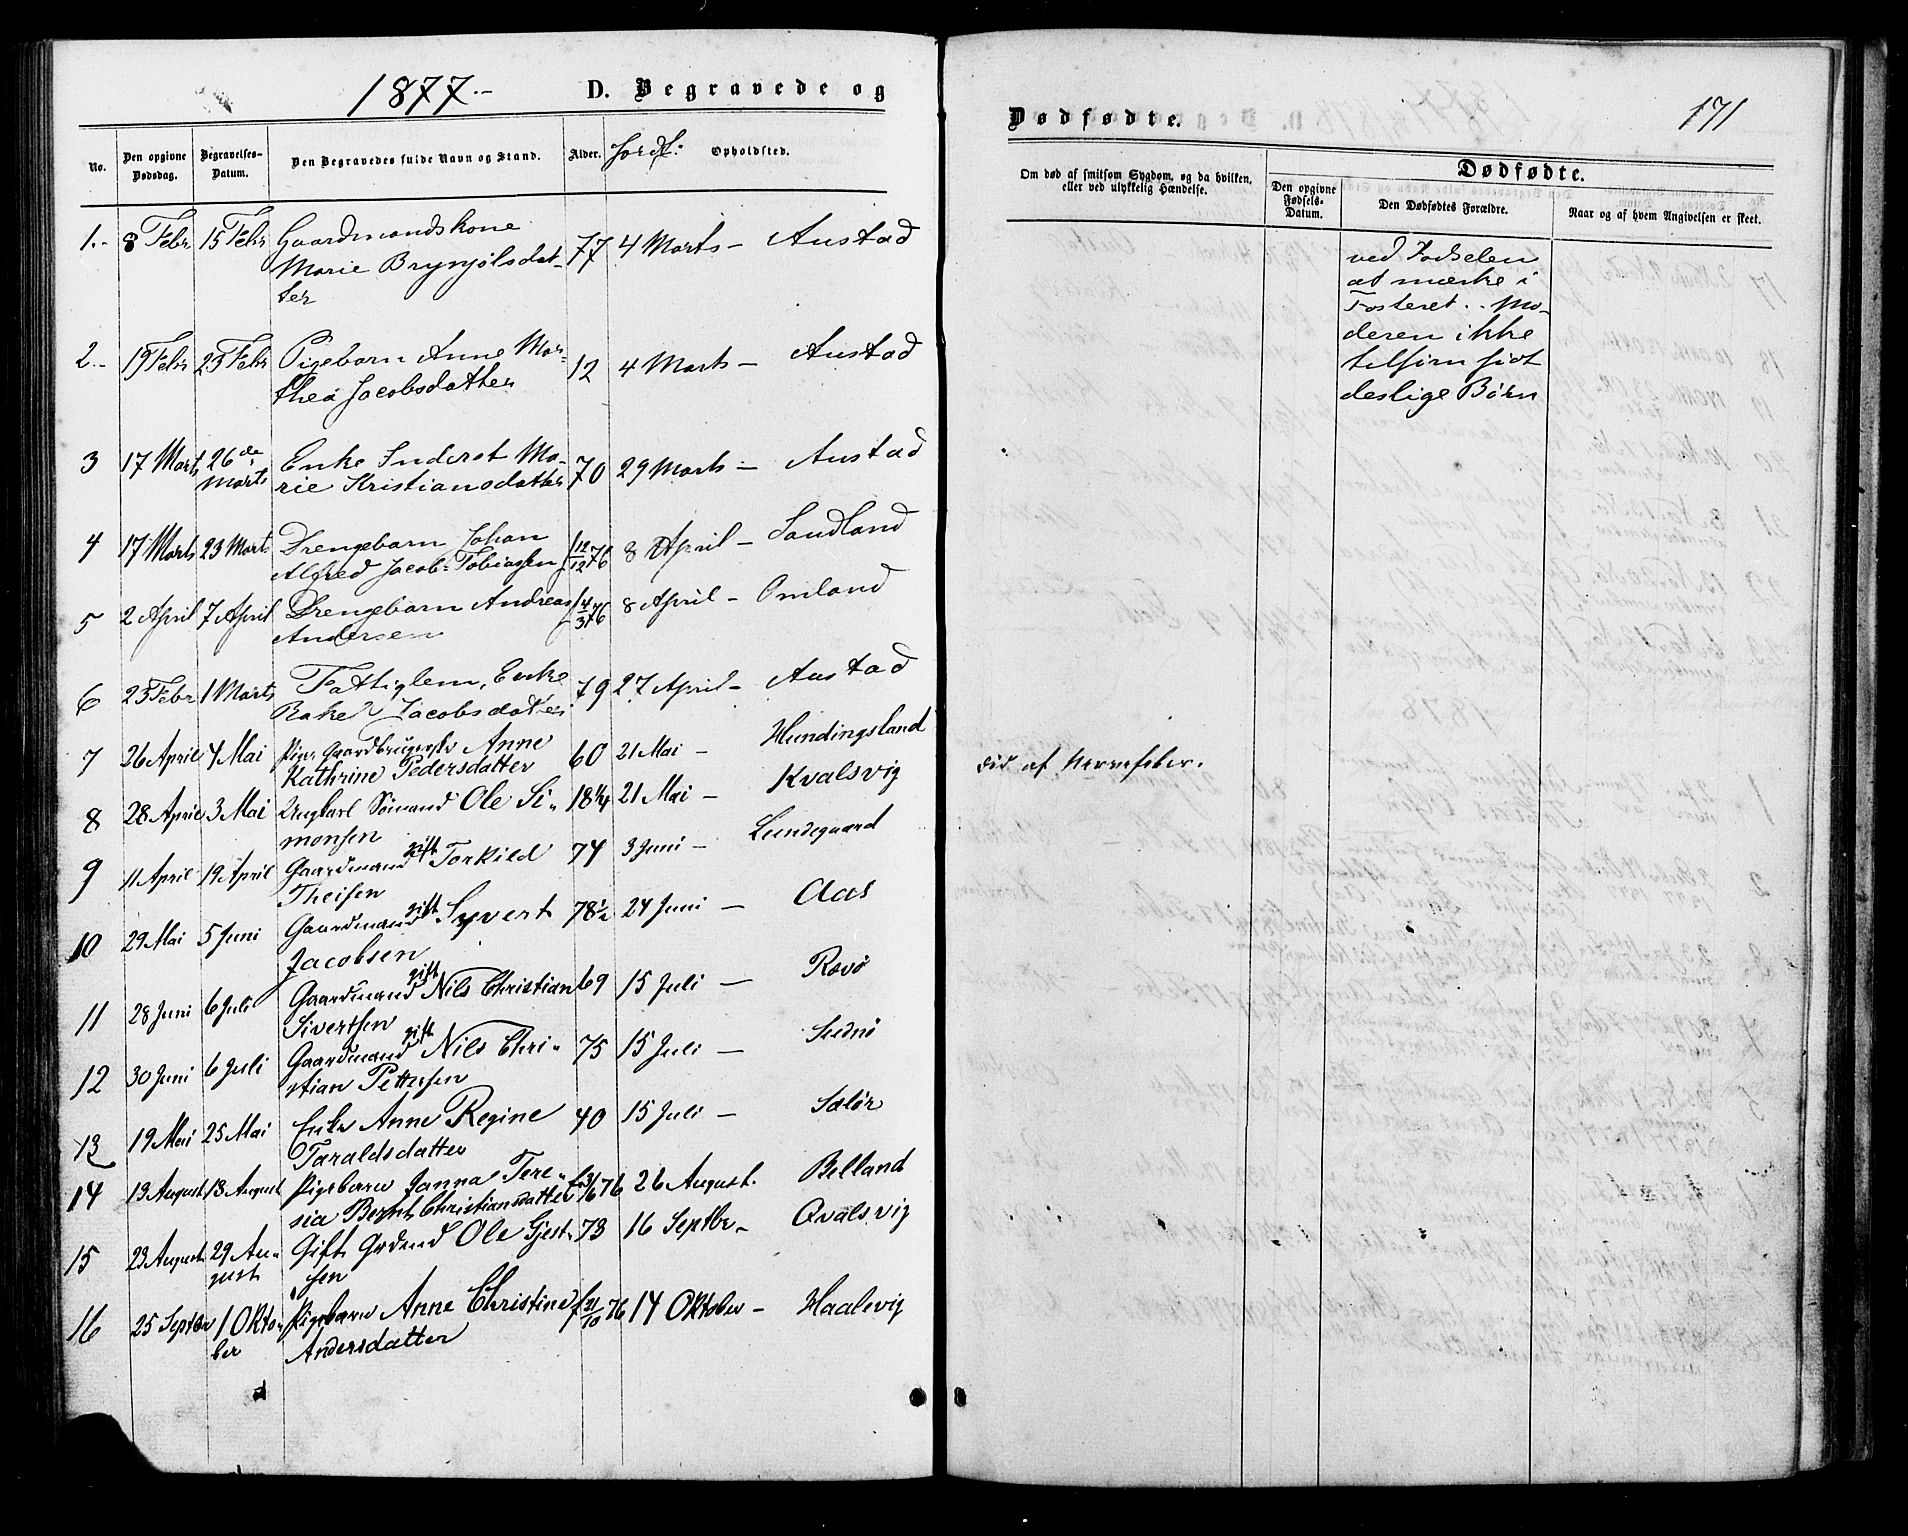 1877.-
D. Begravede og
No.
Den opgivne Dødsdag.
Begravelses-Datum.
Den Begravedes fulde Navn og Stand.
Alder.
Jordf:
Opholdsted.
1.- 8 Febr 15 Febr Gaardmandskone 77 4 Marts - Austad
Marie Brynjölsdat-
ter
2.- 19 Febr 23 Febr Pigebarn Anne Mar- 12 4 Marts - Austad
thea Jacobsdatter
3 17 Marts 26de Marts Enke Inderet Ma- 70 29 Marts - Austad
rie Kristiansdatter
4 17 Marts 23 Marts Drengebarn Johan f 12/12 76 8 April - Sandland
Alfred Jacob Tobiassen
5 2 April 7 April Drengebarn Andreas f 4/3 76 8 April - Omland
Andersen
6 23 Febr 1 Marts Fattiglem, Enke 79 27 April - Austad
Rakel Jacobsdatter
7 26 April 4 Mai Pige, Gaardbrugerske Anne 60 21 Mai - Hundingsland
Kathrine Pedersdatter
8 28 April 3 Mai Ungkarl Sömand Ole Si- 18 1/4 21 Mai - Kvalsvig
monsen
9 11 April 19 April Gaardmand gift Torkild 74 3 Juni - Lundegaard
Theisen
10 29 Mai 5 Juni Gaardmand gift Syvert 78 1/2 24 Juni - Aas
Jacobsen
11 28 Juni 6 Juli Gaardmand gift Nils Christian 69 15 Juli - Rævø
Sivertsen
12 30 Juni 6 Juli Gaardmand gift Nils Chri- 75 15 Juli - Sudnø
stian Pettersen
13 19 Mai 25 Mai Enke Anne Regine 40 15 Juli - Sælør
Taraldsdatter
14 13 August 18 August Pigebarn Janna Tere- 76 26 August. Belland
sia Bernt. Christiansdatter
15 23 August 29 Au- Gift Ole Gjert- 73 16 Septbr - Qvalsvig
gust sen
16 25 Septbr 1 Okto- Pigebarn Anne Christine f 21/10 76 14 Oktober - Haalevig
ber Andersdatter
Dødfødte.
171
Om død af smitsom Sygdom, og da hvilken,
eller ved ulykkelig Hændelse.
Dødfødte.
Den opgivne Fødsels-Datum.
Den Dødfødtes Forældre.
Naar og af hvem Angivelsen er skeet.
ved Fødselen
at mærke i
Fosteret. . Mo-
deren ikke
tilforn födt
deslige Børn
Død af Nervefeber.